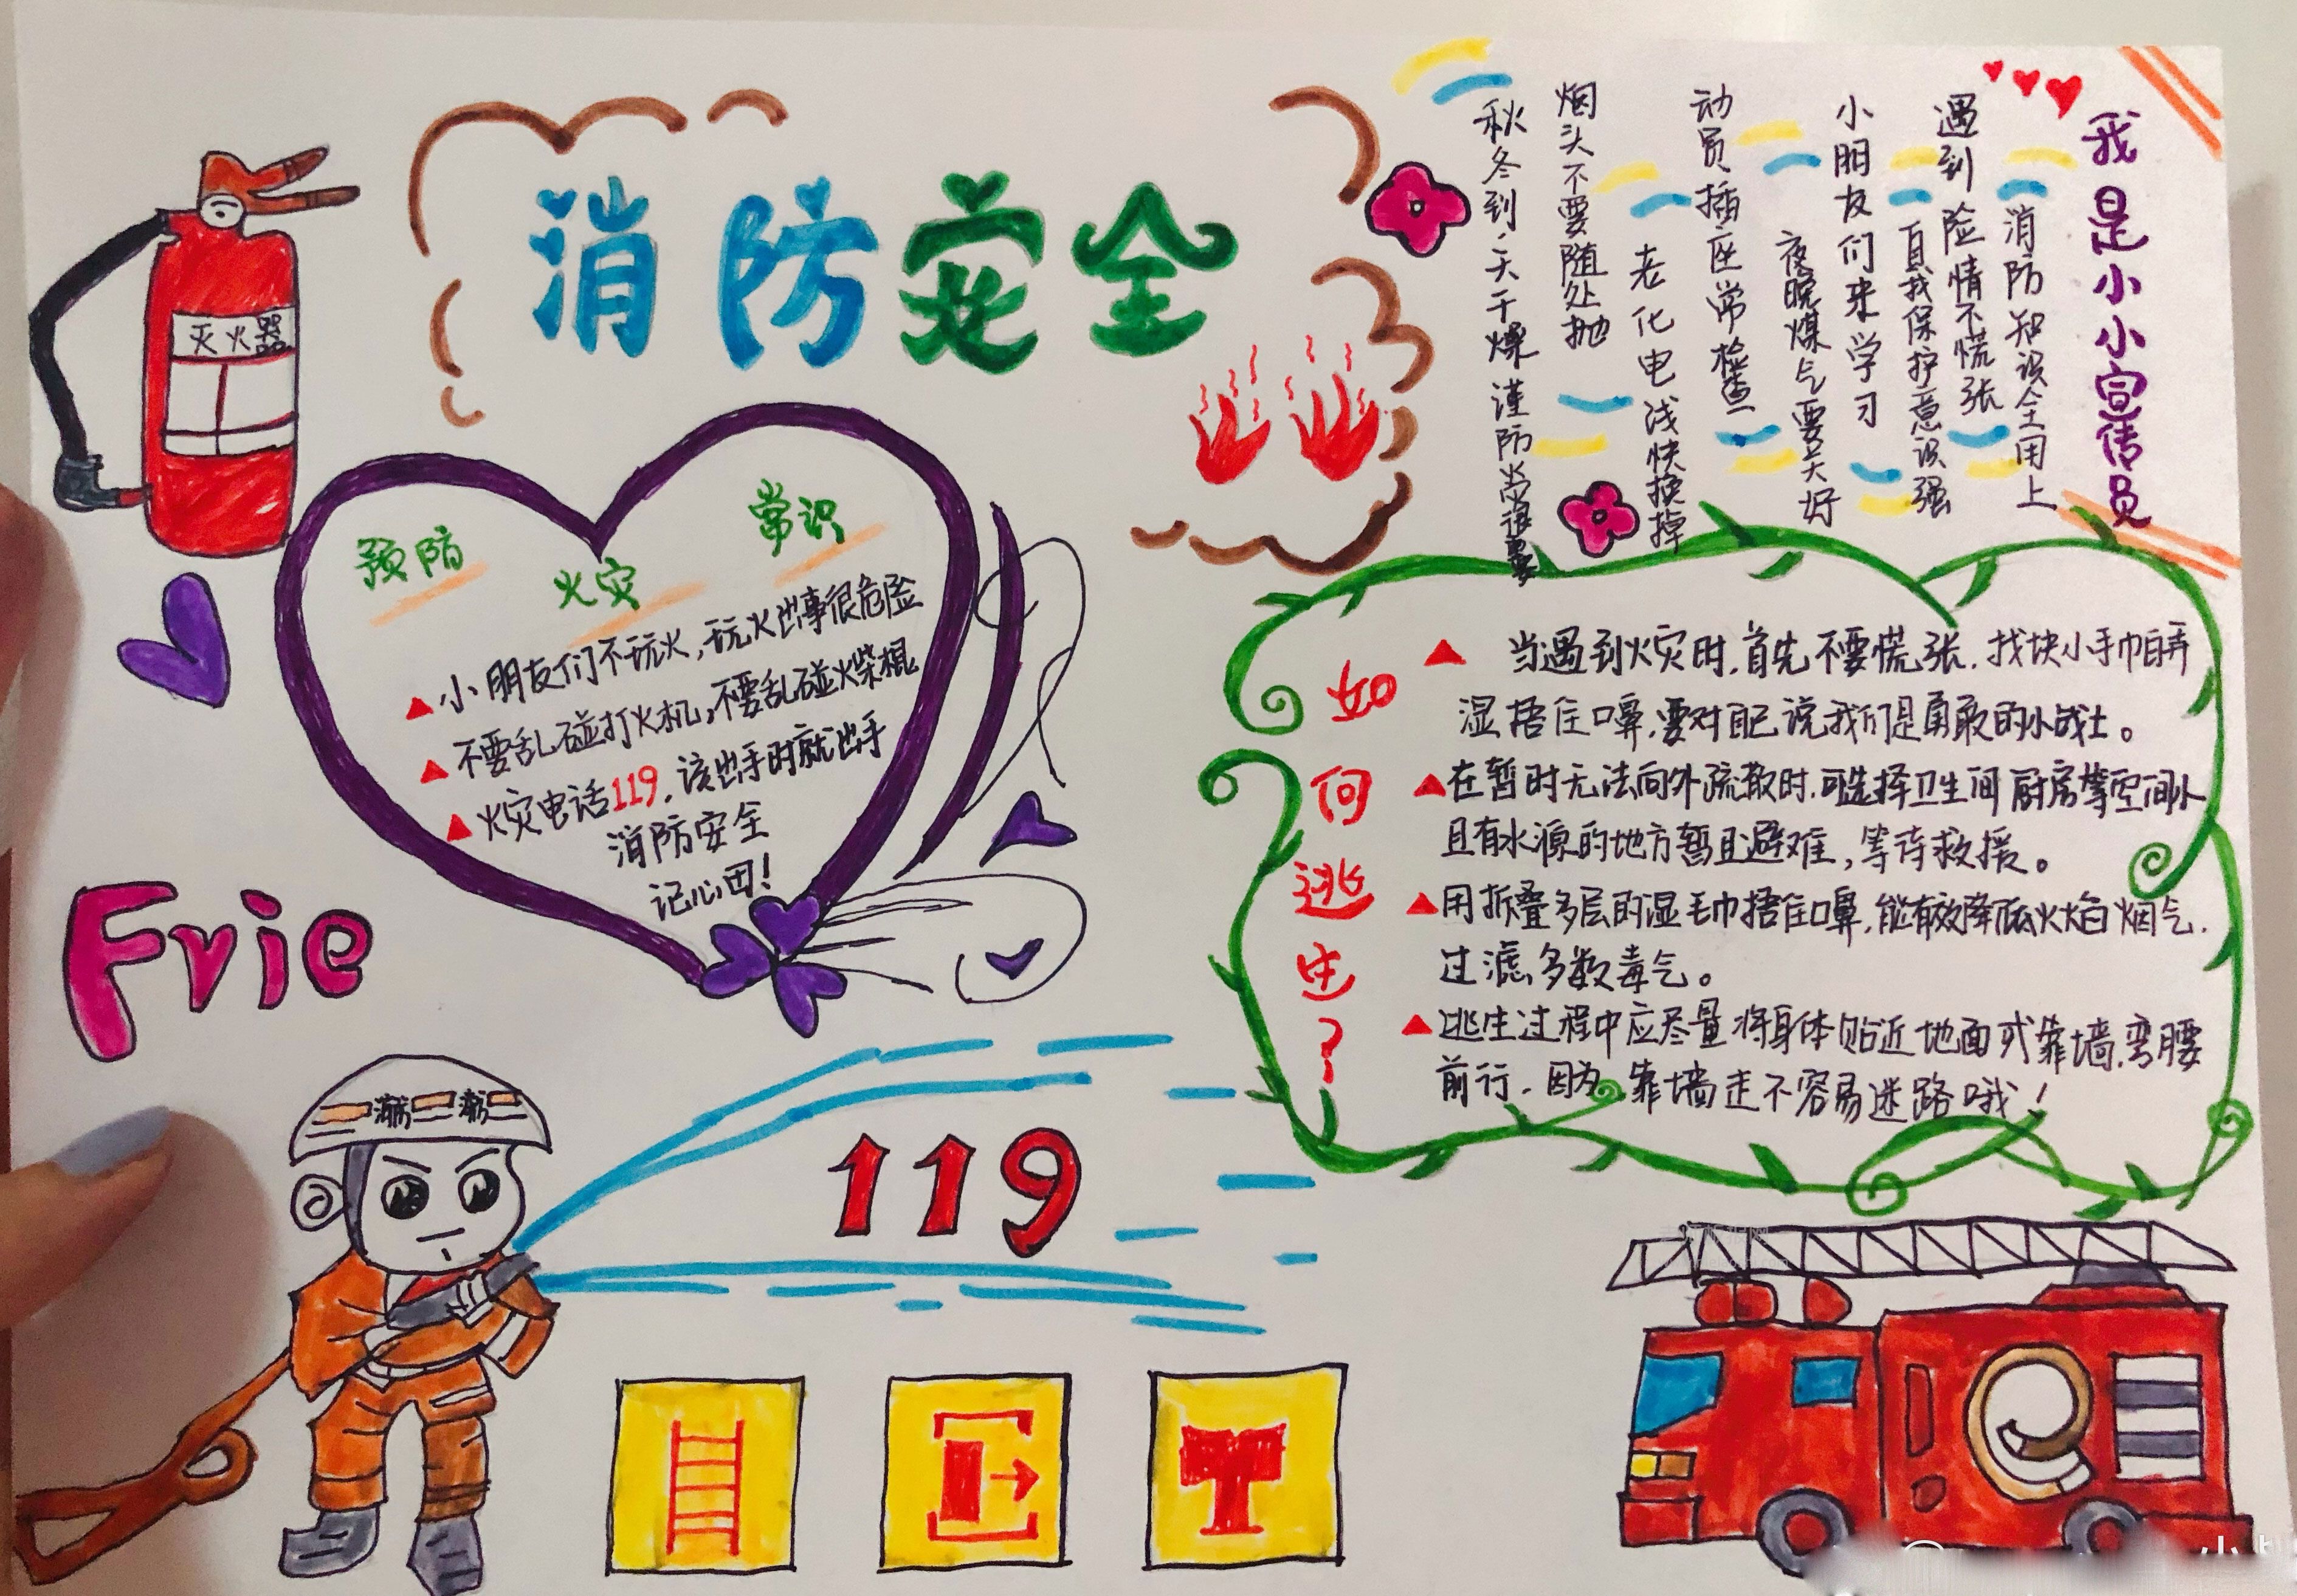 消防安全
灭火器
预防
火灾
常识
小朋友们不玩火,玩火出事很危险
不要乱碰打火机,不要乱碰火柴棍
火灾电话119,该出手时就出手
消防安全
记心田!
我是小小宣传员
消防知识全用上
遇到险情不慌张
自我保护意识强
小朋友们来学习
夜晚煤气要关好
动员插座常检查
老化电线快换掉
烟头不要随处抛
秋冬到天干燥谨防火灾很重要
如何逃生?
当遇到火灾时,首先不要慌张,找块小手巾自弄
湿捂住口鼻,要对自己说我们是勇敢的小战士。
在暂时无法向外疏散时,可选择卫生间厨房等空间小
且有水源的地方暂且避难,等待救援。
用折叠多层的湿毛巾捂住口鼻,能有效降低火焰烟气,
过滤多数毒气。
逃生过程中应尽量将身体贴近地面或靠墙,弯腰
前行,因为靠墙走不容易迷路哦!
Frie
消防 消防
119